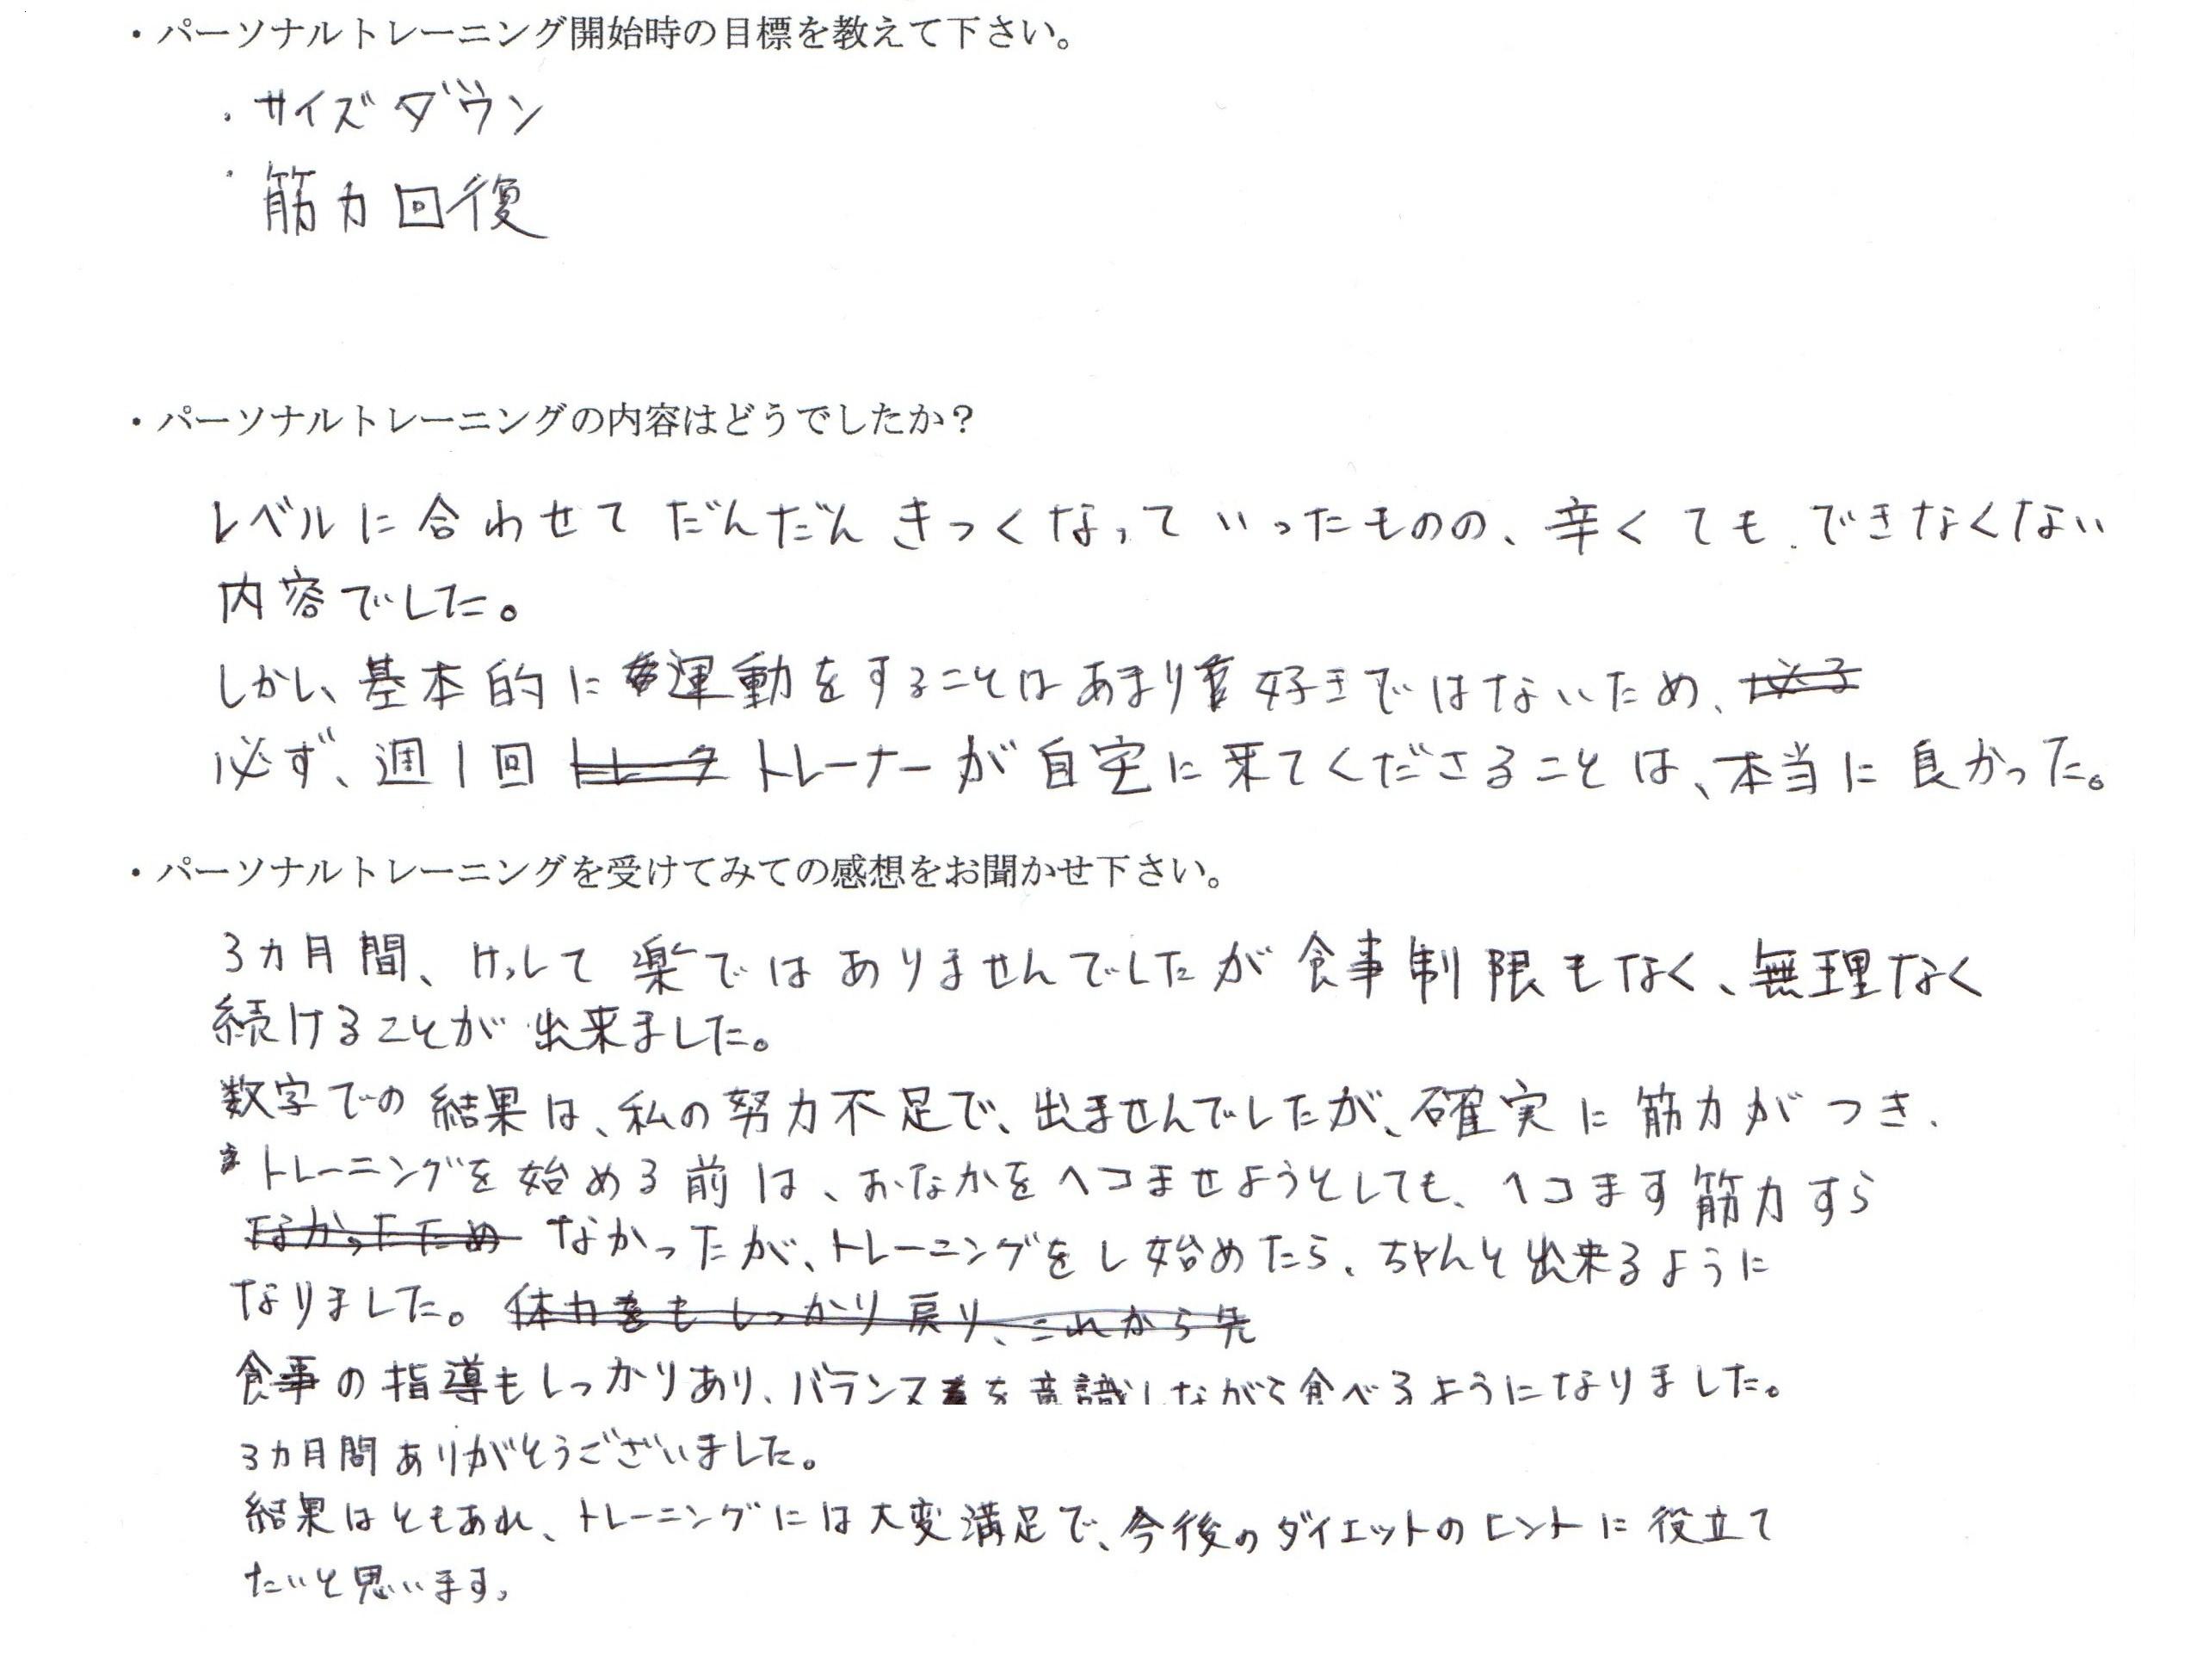 ・パーソナルトレーニング開始時の目標を教えて下さい。
・サイズダウン
・筋力回復
・パーソナルトレーニングの内容はどうでしたか？
レベルに合わせてだんだんきっくなっていったものの、辛くても、できなくない
内容でした。
しかし、基本的に運動をすることはあまり好きではないため、
必ず、週1回 トレーナーが自宅に来てくださることは、本当に良かった。
・パーソナルトレーニングを受けてみての感想をお聞かせ下さい。
3カ月間、けっして楽ではありませんでしたが食事制限もなく、無理なく
続けることが出来ました。
数字での結果は、私の努力不足で、出ませんでしたが、確実に筋力がつき、
トレーニングを始める前は、おなかをヘコませようとしても、ヘコます筋力すら
なかったため なかったが、トレーニングをし始めたら、ちゃんと出来るように
なりました。体力もしっかり戻り、これから先
食事の指導もしっかりあり、バランスを意識しながら食べるようになりました。
3カ月間ありがとうございました。
結果はともあれ、トレーニングには大変満足で、今後のダイエットのヒントに役立て
たいと思います。